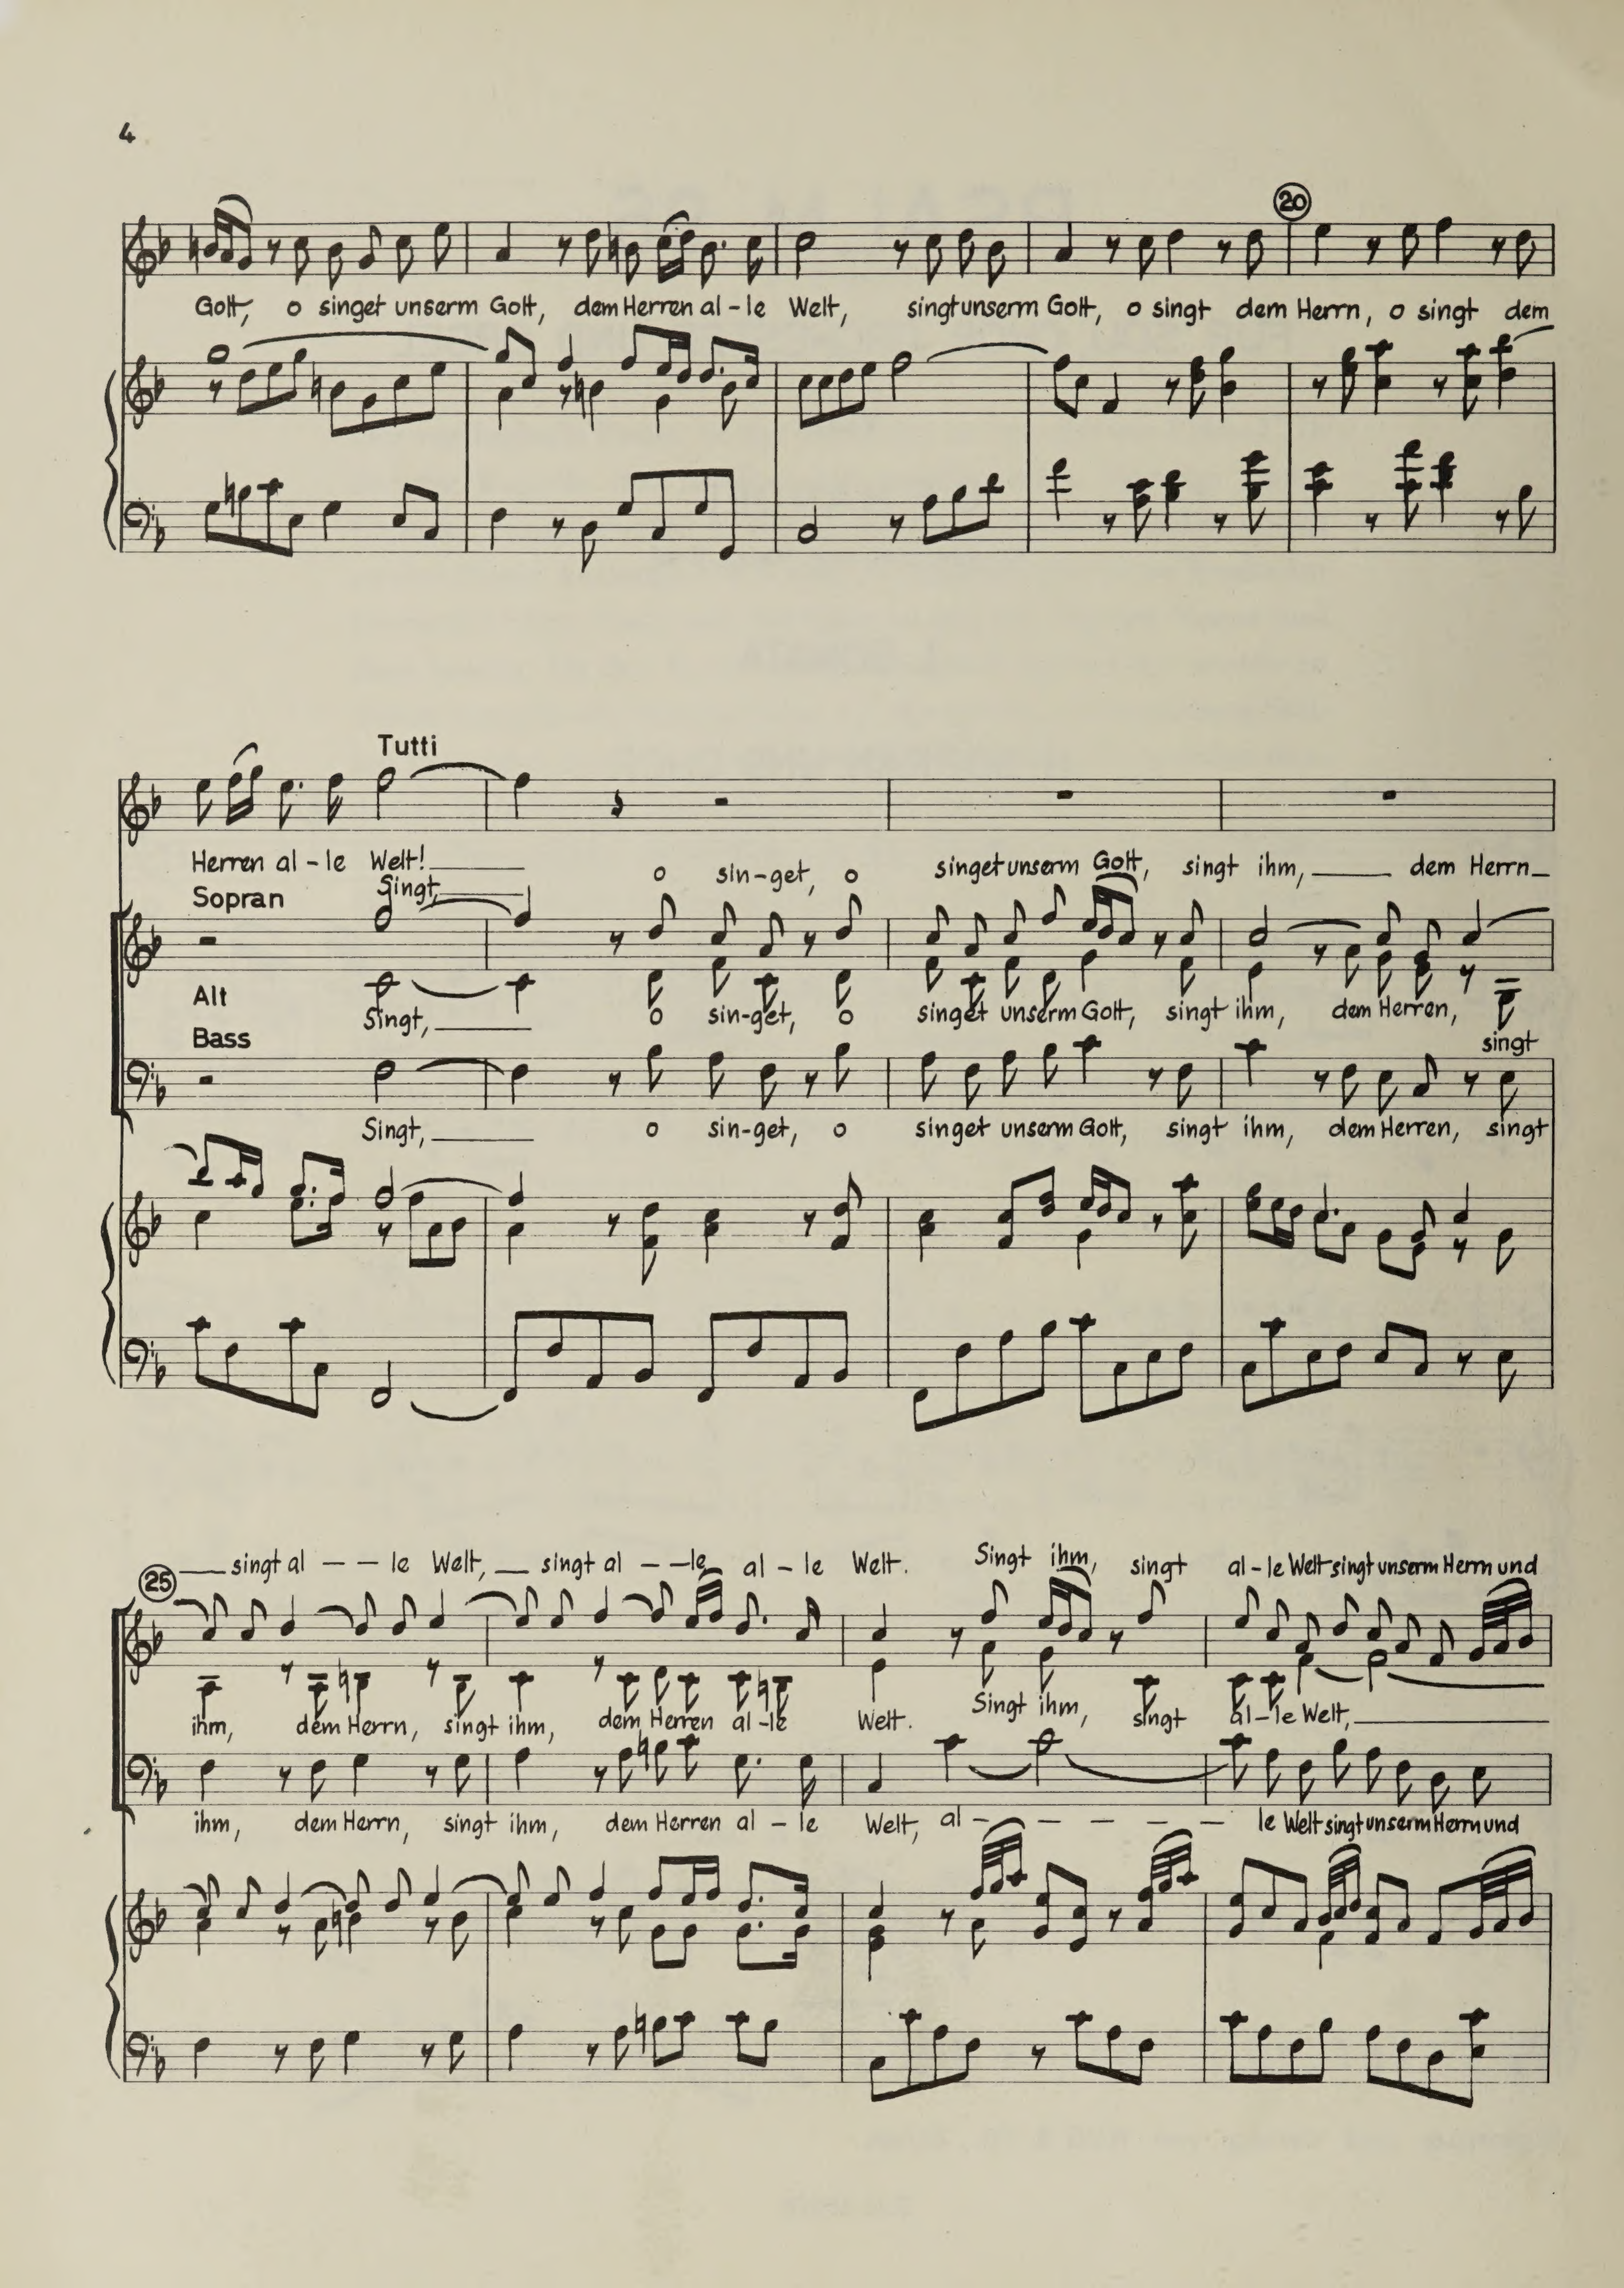 4
20
Gott, o singet unserm Gott, dem Herren al-le Welt, singt unserm Gott, o singt dem Herrn, o singt dem
Tutti
Herren al-le Welt!
Sopran
Singt, o sin-get, o singet unserm Gott, singt ihm, dem Herrn
Alt
Singt, o sin-get, o singet unserm Gott, singt ihm, dem Herren, singt
Bass
Singt, o sin-get, o singet unserm Gott, singt ihm, dem Herren, singt
25
singt al - - le Welt, singt al - - le al - le Welt. Singt ihm, singt al-le Welt singt unserm Herrn und
ihm, dem Herrn, singt ihm, dem Herren al-le Welt. Singt ihm, singt al-le Welt,
ihm, dem Herrn, singt ihm, dem Herren al - le Welt, al - - - - - le Welt singt unserm Herrn und